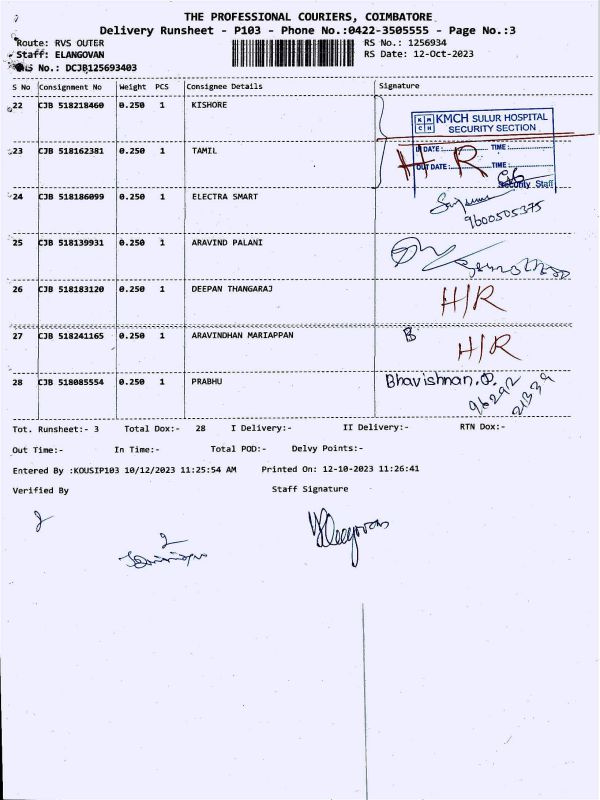 THE PROFESSIONAL COURIERS, COIMBATORE
Delivery Runsheet - P103 - Phone No.:0422-3505555 - Page No.:3
Route: RVS OUTER RS No.: 1256934
Staff: ELANGOVAN RS Date: 12-Oct-2023
No.: DCJB125693403
S No Consignment No Weight PCS Consignee Details Signature
22 CJB 518218460 0.250 1 KISHORE
KMCH SULUR HOSPITAL
SECURITY SECTION
23 CJB 518162381 0.250 1 TAMIL
IN DATE: TIME:
OUT DATE: TIME:
H R
Security Staff
24 CJB 518186099 0.250 1 ELECTRA SMART
9600505375
25 CJB 518139931 0.250 1 ARAVIND PALANI
26 CJB 518183120 0.250 1 DEEPAN THANGARAJ H/R
27 CJB 518241165 0.250 1 ARAVINDHAN MARIAPPAN B H/R
28 CJB 518085554 0.250 1 PRABHU Bhavishnan.P.
96292
21339
Tot. Runsheet:- 3 Total Dox:- 28 I Delivery:- II Delivery:- RTN Dox:-
Out Time:- In Time:- Total POD:- Delvy Points:-
Entered By :KOUSIP103 10/12/2023 11:25:54 AM Printed On: 12-10-2023 11:26:41
Verified By Staff Signature